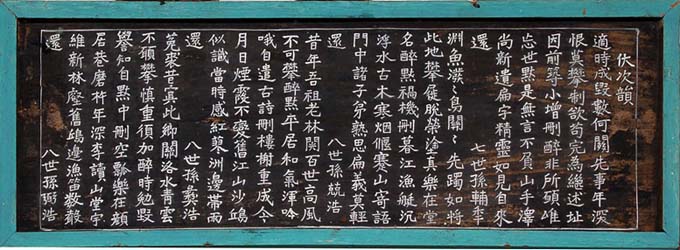 伏次韻
適時成毁數何關先事年深
悵莫攀制欲苟完為継述址
因前築小增刪醉非所願唯
忘世點是無言不負山手澤
尚新遺扁字精靈如見自來
還 七世孫輔
淵魚潑〻鳥關〻先躅如將
此地攀屣脫榮塗真樂在堂
名醉點禍機刪暮江漁艇沉
浮水古木寒烟偃蹇山寄語
門中諸子弟熟思扁義莫輕
還 八世孫兢浩
昔年吾祖老林関百世高風
不可攀醉點平居和氣渾吟
哦自遣古詩刪樓榭重成今
月日煙霞不變舊江山沙鴎
似識當時感紅蓼洲邊帶雨
還 八世孫彛浩
菟裘昔寘此鄉關洛水靑雲
不願攀慎重須加醉時勉毀
譽知自點中刪空瓢樂在顔
居巷磨杵年深李讀山堂宇
維新林壑舊鴎邊漁笛數聲
還 八世孫弼浩